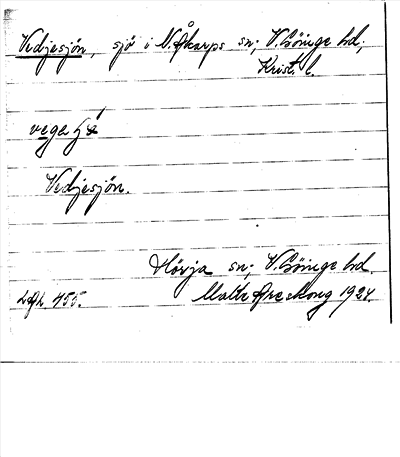 Vedjesjön, sjö i N. Åkarps sn; V. Göinge hd,
Krist. l.
Vedjesjön.
Hörja sn; V. Göinge hd.
Malte Areskoug 1924.